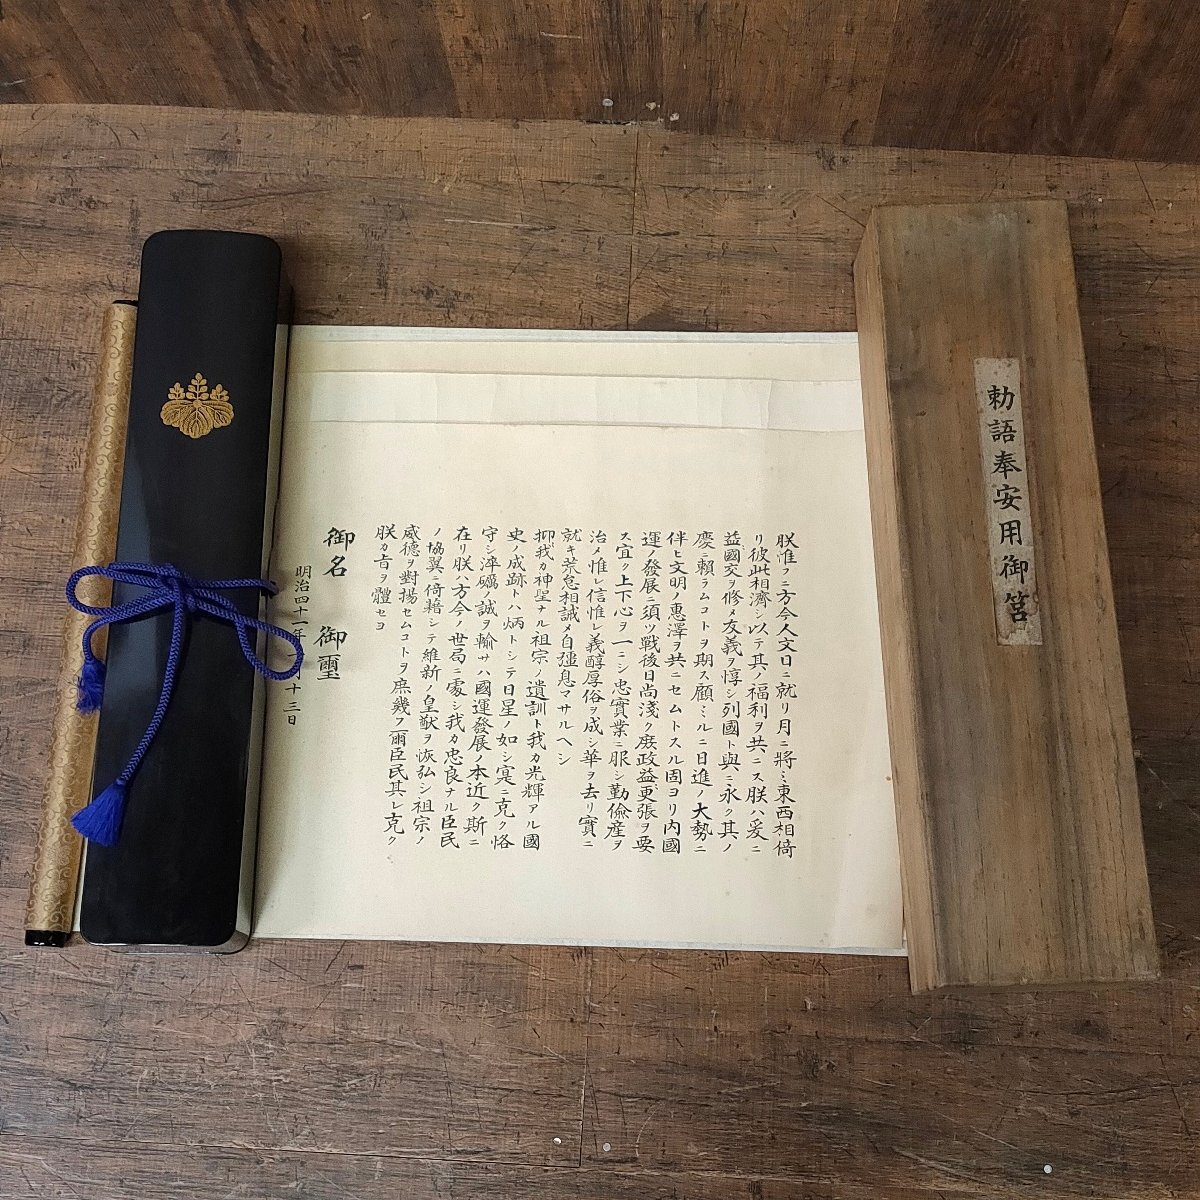 勅語奉安用御筥
朕惟フニ方今人文日ニ就リ月ニ將ミ東西相倚
リ彼此相濟シ以テ其ノ福利ヲ共ニス朕ハ爰ニ
益國交ヲ修メ友義ヲ惇シ列國ト與ニ永ク其ノ
慶ニ賴ラムコトヲ期ス顧ミルニ日進ノ大勢ニ
伴ヒ文明ノ惠澤ヲ共ニセムトスル固ヨリ内國
運ノ發展ニ須ツ戰後日尚淺ク庶政益更張ヲ要
ス宜ク上下心ヲ一ニシ忠實業ニ服シ勤儉産ヲ
治メ惟レ信惟レ義醇厚俗ヲ成シ華ヲ去リ實ニ
就キ荒怠相誡メ自彊息マサルヘシ
抑我カ神聖ナル祖宗ノ遺訓ト我カ光輝アル國
史ノ成跡トハ炳トシテ日星ノ如シ寔ニ克ク恪
守シ淬礪ノ誠ヲ輸サハ國運發展ノ本近ク斯ニ
在リ朕ハ方今ノ世局ニ處シ我カ忠良ナル臣民
ノ協翼ニ倚藉シテ維新ノ皇猷ヲ恢弘シ祖宗ノ
威德ヲ對揚セムコトヲ庶幾フ爾臣民其レ克ク
朕カ旨ヲ體セヨ
御名 御璽
明治四十一年 月十三日